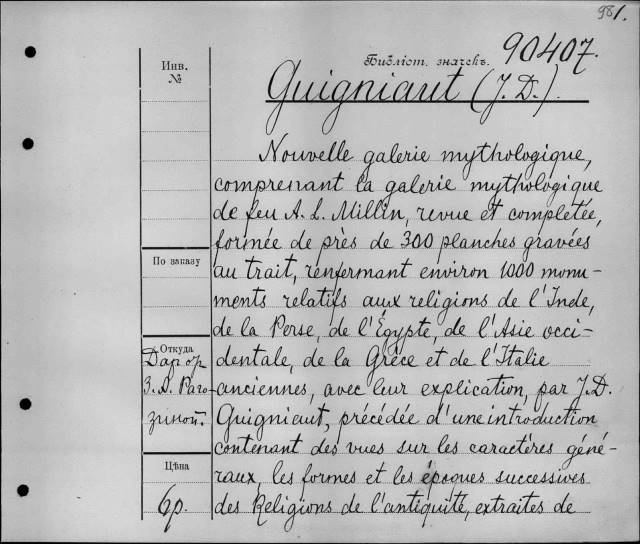 981.
Библіот. значекъ. 90407.
Инв.
№
Guigniaut (J. D.).
Nouvelle galerie mythologique,
comprenant la galerie mythologique
de feu A. L. Millin, revue et complétée,
formée de près de 300 planches gravées
По заказу
au trait, renfermant environ 1000 monu-
ments relatifs aux religions de l'Inde,
de la Perse, de l'Égypte, de l'Asie occi-
Откуда
Даръ
dentale, de la Grèce et de l'Italie
З. А. Раго-
anciennes, avec leur explication, par J. D.
зиной.
Guigniaut, précédée d'une introduction
contenant des vues sur les caractères géné-
Цѣна
raux, les formes et les époques successives
6р.
des Religions de l'antiquité, extraites de